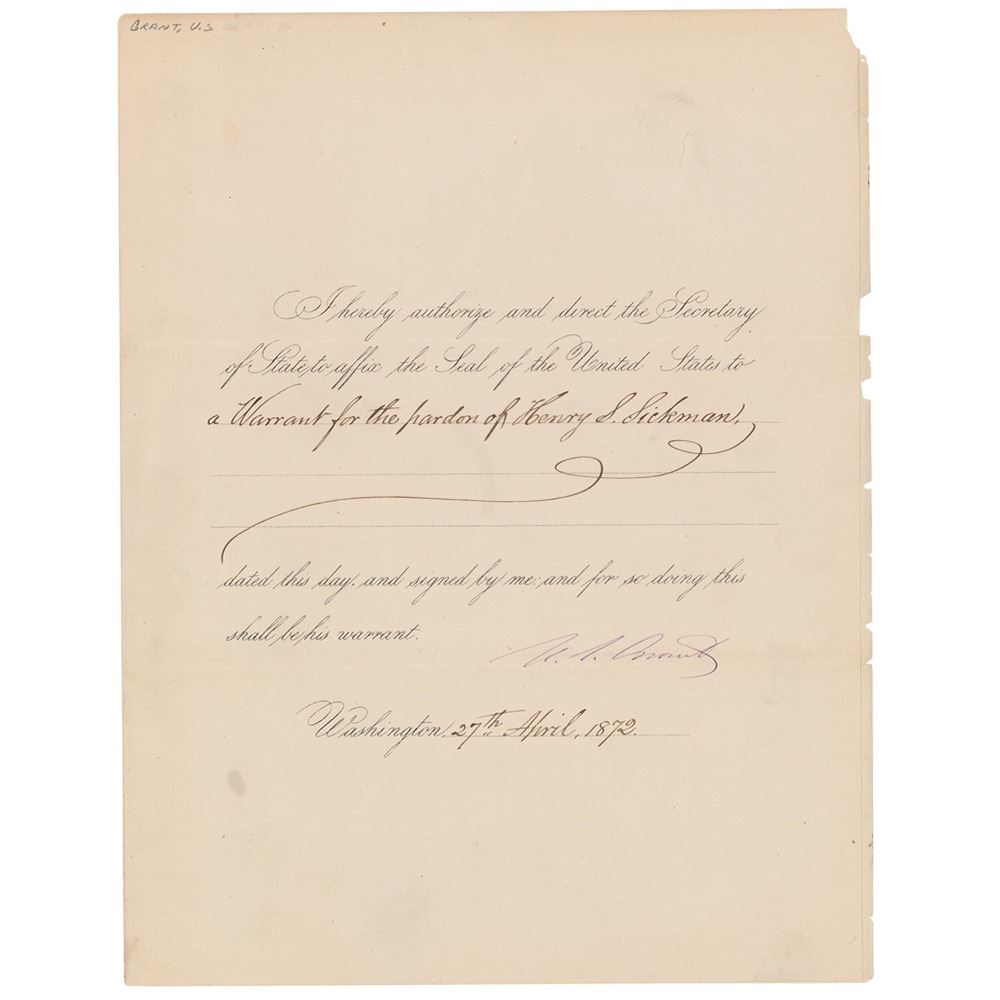 GRANT, U.S
I hereby authorize and direct the Secretary
of State to affix the Seal of the United States to
a Warrant for the pardon of Henry S. Sickman,
dated this day, and signed by me: and for so doing this
shall be his warrant.
U. S. Grant
Washington, 27th April, 1872.